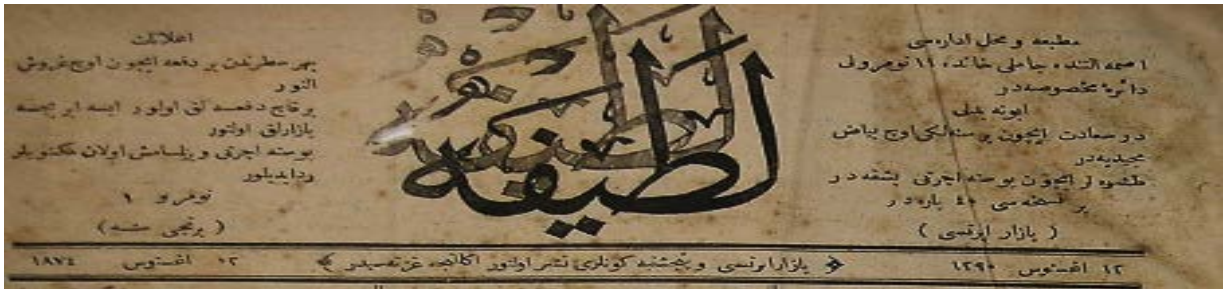 مطبعه و محل اداره‌سی
اصمه التنده جاملی خانده ١١ نومرولی
دائرهٔ مخصوصه‌در
ابونه بدلی
درسعادت ایچون بر سنه‌لکی اوچ بیاض
مجیدیه‌در
طشره‌لر ایچون پوسته اجرتی بشقه‌در
بر نسخه‌سی ٤٠ پاره‌در
( بازار ایرتسی )
لطیفه
اعلانات
بهر سطرندن بر دفعه ایچون اوچ غروش
النور
بر قاچ دفعه‌لق اولور ایسه ایریجه
بازارلق اولنور
پوسته اجرتی ویرلمامش اولان مکتوبلر
رد ایدیلور
نومرو ١
( برنجی سنه )
١٢ اغستوس ١٢٩٠
بازار ایرتسی و پنجشنبه کونلری نشر اولنور اکلنجه غزته‌سیدر
١٢ اغستوس ١٨٧٤